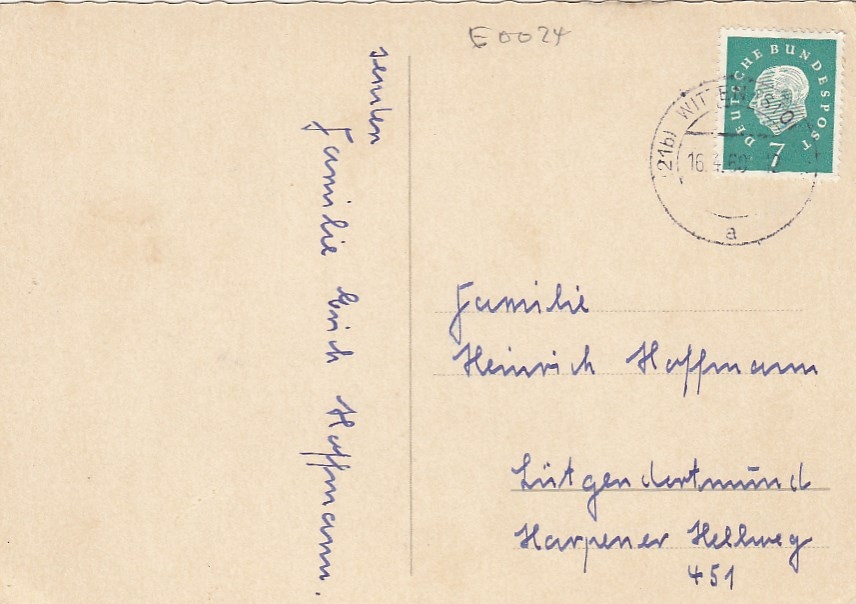 E 0024
senden
Familie Erich Hoffmann.
DEUTSCHE BUNDESPOST
7
(21b) WITTEN
16.4.60
a
Familie
Heinrich Hoffmann
Lütgendortmund
Harpener Hellweg
451